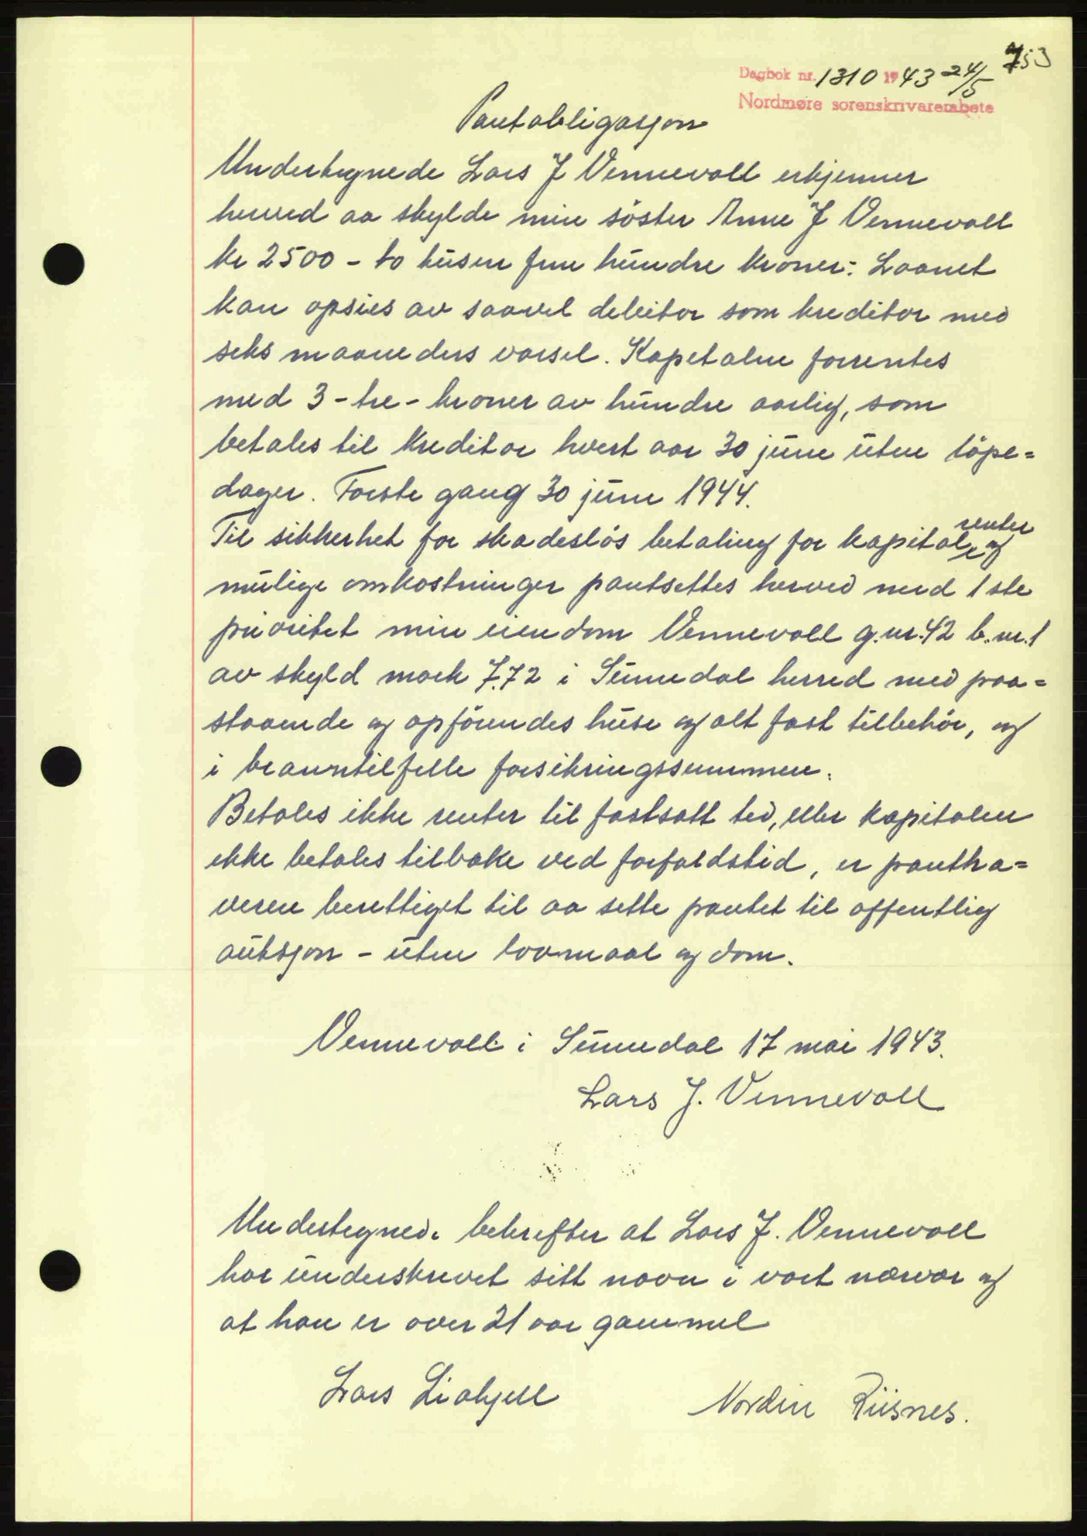 753
Dagbok nr. 1310 1943 24/5
Nordmøre sorenskrivarembete
Pantobligasjon
Undertegnede Lars J Vennevoll erkjenner
herved aa skylde min söster Anne J Vennevoll
kr 2500 - to tusen fem hundre kroner: Laanet
kan opsies av saavel debitor som kreditor med
seks maaneders varsel. Kapitalen forrentes
med 3 - tre - kroner av hundre aarlig, som
betales til kreditor hvert aar 30 juni uten löpe=
dager. Förste gang 30 juni 1944.
Til sikkerhet for skadeslös betaling for kapital, renter og
mulige omkostninger pantsettes herved med 1ste
prioritet min eiendom Vennevoll g.nr. 42 b.nr. 1
av skyld mark 7.72 i Sunndal herred med paa=
staaende og opförendes huse og alt fast tilbehör, og
i branntilfelle forsikringssummen.
Betales ikke renter til fastsatt tid, eller kapitalen
ikke betales tilbake ved forfaldstid, er pantha=
veren berettiget til aa sette pantet til offentlig
auksjon - uten lovmaal og dom.
Vennevoll i Sunndal 17 mai 1943.
Lars J. Vennevoll
Undertegnede bekrefter at Lars J. Vennevoll
har underskrevet sitt navn i vort nærvær og
at han er over 21 aar gammel
Lars Liahjell
Nordin Riisnes.